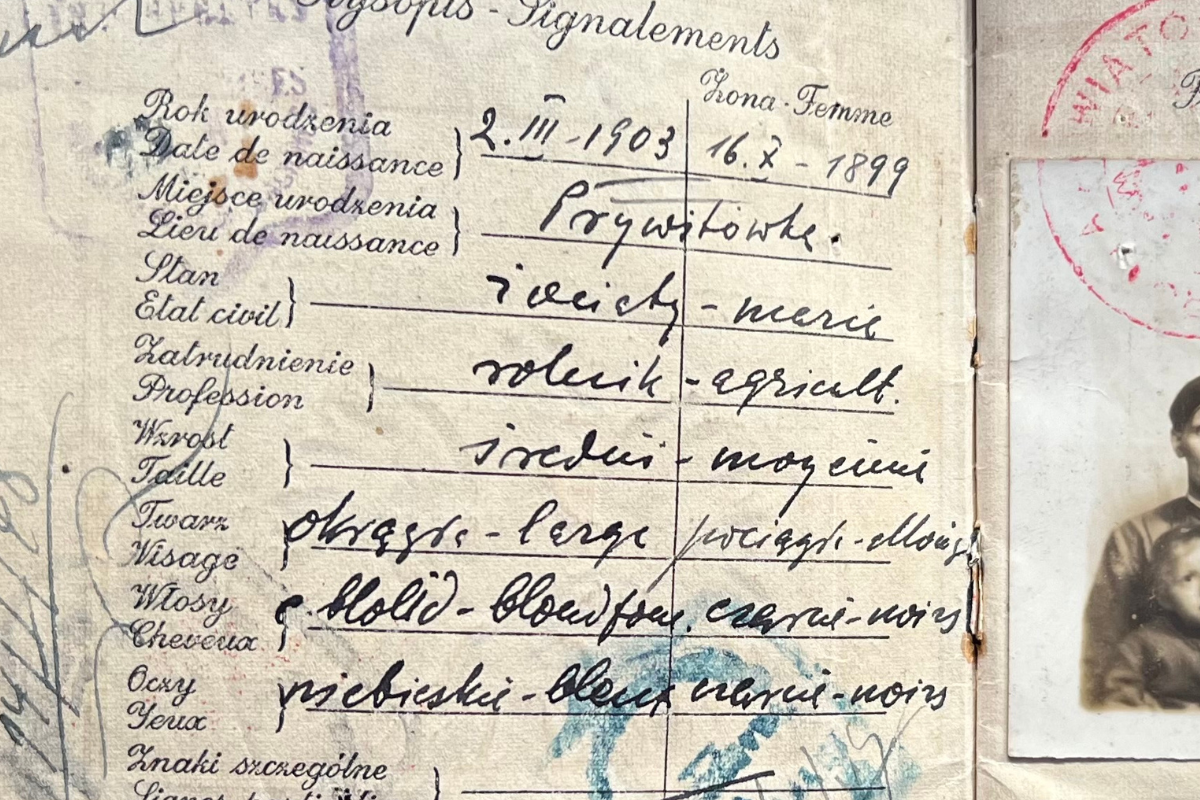 Rysopis - Signalements
Żona - Femme
Rok urodzenia
Date de naissance
2. III - 1903 16. X - 1899
Miejsce urodzenia
Lieu de naissance
Prywitówka.
Stan
Etat civil
żonaty - marié
Zatrudnienie
Profession
rolnik - agricult.
Wzrost
Taille
średni - moyenne
Twarz
Wisage
okrągła - large pociągła - allongé
Włosy
Cheveux
c. blond - blond fonc. czarne - noirs
Oczy
Yeux
niebieskie - bleux czarne - noirs
Znaki szczególne